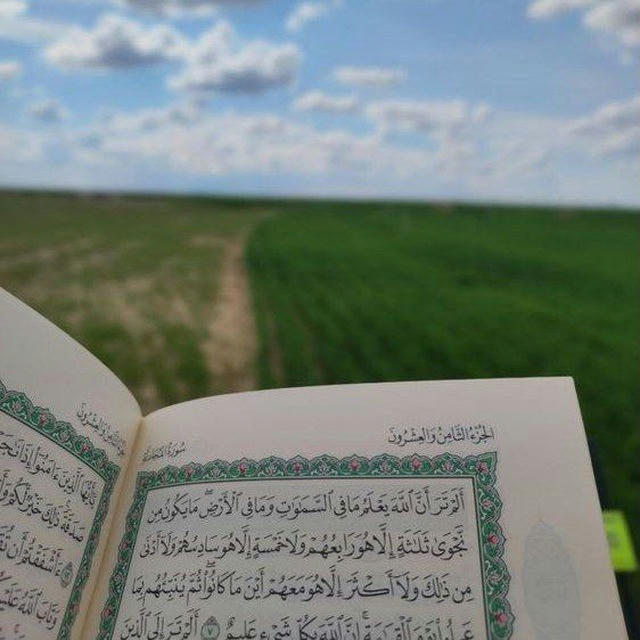 الجزء الثامن والعشرون
سورة المجادلة
أَلَمْ تَرَ أَنَّ ٱللَّهَ يَعْلَمُ مَا فِي ٱلسَّمَٰوَٰتِ وَمَا فِي ٱلْأَرْضِۖ مَا يَكُونُ مِن
نَّجْوَىٰ ثَلَٰثَةٍ إِلَّا هُوَ رَابِعُهُمْ وَلَا خَمْسَةٍ إِلَّا هُوَ سَادِسُهُمْ وَلَآ أَدْنَىٰ
مِن ذَٰلِكَ وَلَآ أَكْثَرَ إِلَّا هُوَ مَعَهُمْ أَيْنَ مَا كَانُوا۟ۖ ثُمَّ يُنَبِّئُهُم بِمَا
عَمِلُوا۟ يَوْمَ ٱلْقِيَٰمَةِۚ إِنَّ ٱللَّهَ بِكُلِّ شَيْءٍ عَلِيمٌ ٧ أَلَمْ تَرَ إِلَى ٱلَّذِينَ
يَٰٓأَيُّهَا ٱلَّذِينَ ءَامَنُوٓا۟ إِذَا
صَدَقَةً ذَٰلِكَ خَيْرٌ لَّكُمْ
ءَأَشْفَقْتُمْ أَن
وَتَابَ ٱللَّهُ